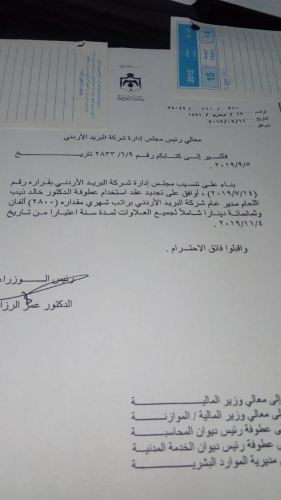 2012
15
14
معالي رئيس مجلس إدارة شركة البريد الأردني
فأشير إلى كتابكم رقم ٢٨٣٣/٦/٩ تاريخ
٢٠١٩/٩/٥
بناء على تنسيب مجلس إدارة شركة البريد الأردني بقراره رقم
(٢٠١٩/٧/١٤)، أوافق على تجديد عقد استخدام عطوفة الدكتور خالد ذيب
اللحام مدير عام شركة البريد الأردني براتب شهري مقداره (٢٨٠٠) ألفان
وثمانمائة دينارا شاملاً لجميع العلاوات لمدة سنة اعتبارا من تاريخ
٢٠١٩/١١/٤.
واقبلوا فائق الاحترام،
رئيس الوزراء
الدكتور عمر الرزا
إلى معالي وزير المالية
إلى معالي وزير المالية / الموازنة
عطوفة رئيس ديوان المحاسبة
عطوفة رئيس ديوان الخدمة المدنية
مديرية الموارد البشرية